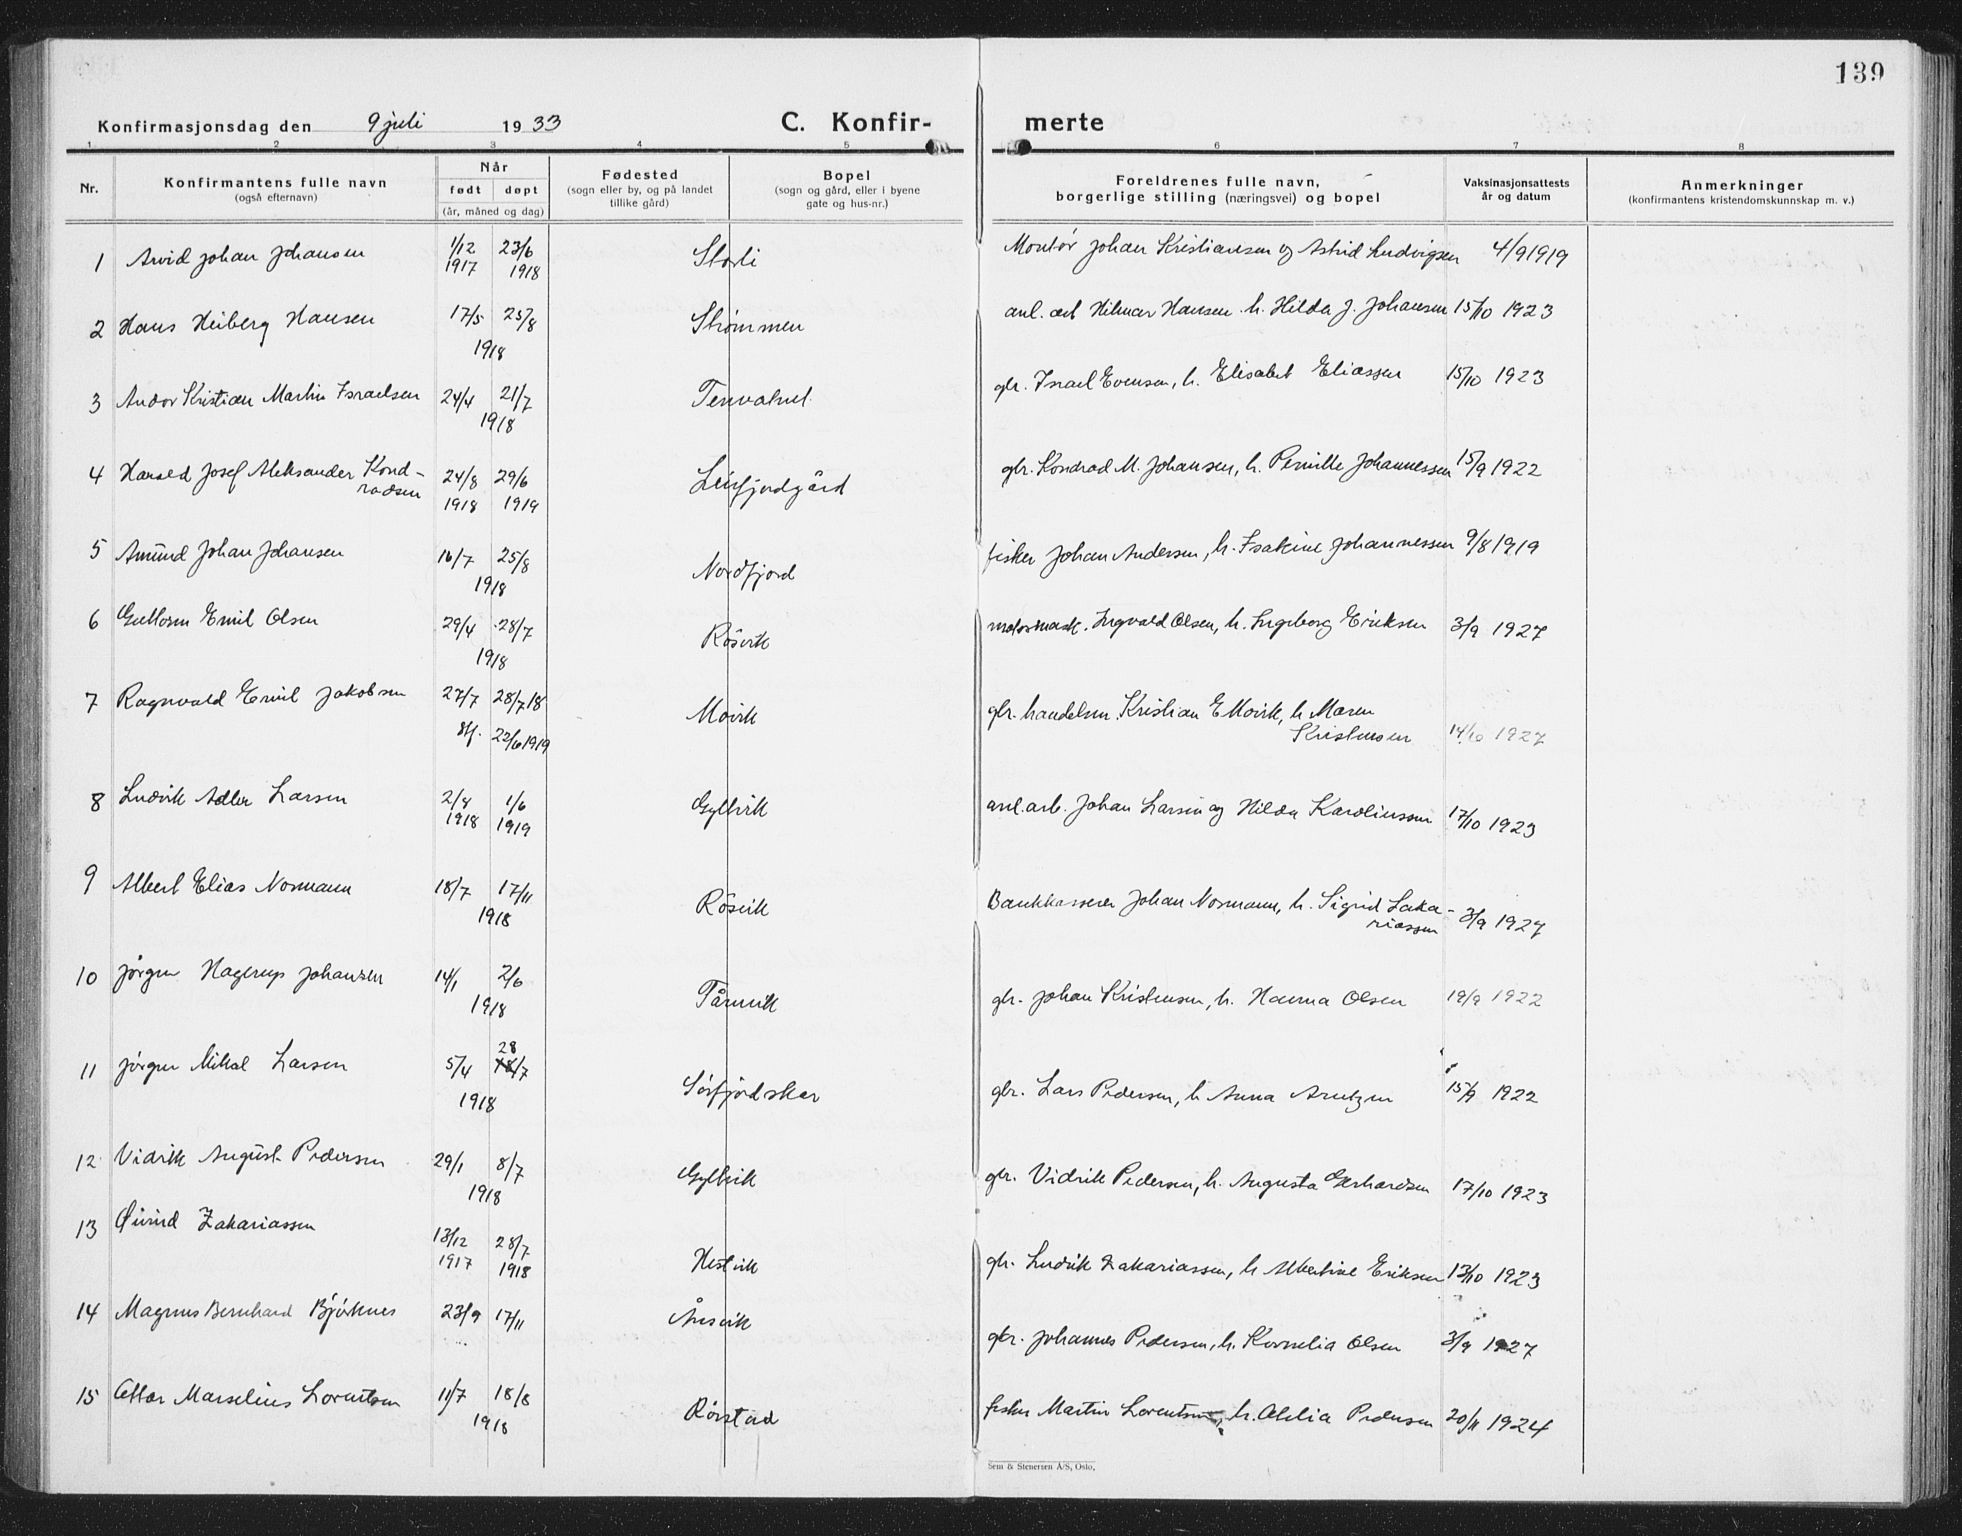 139
Konfirmasjonsdag den 9 juli 1933 C. Konfir- merte
1 2 3 4 5 6 7 8
Nr. Konfirmantens fulle navn (også efternavn) Når født døpt (år, måned og dag) Fødested (sogn eller by, og på landet tillike gård) Bopel (sogn og gård, eller i byene gate og hus-nr.) Foreldrenes fulle navn, borgerlige stilling (næringsvei) og bopel Vaksinasjonsattests år og datum Anmerkninger (konfirmantens kristendomskunnskap m. v.)
1 Arvid Johan Johansen 1/12 1917 23/6 1918 Storli Montør Johan Kristiansen og Astrid Ludvigsen 4/9 1919
2 Hans Heiberg Hansen 17/5 25/8 1918 Strømmen anl. arb Hilmar Hansen h. Hilda J. Johansen 15/10 1923
3 Andor Kristian Martin Israelsen 24/4 21/7 1918 Tennvatnet gbr. Israel Evensen, h. Elisabet Eliassen 15/10 1923
4 Harald Josef Aleksander Kond-
radsen 24/8 1918 29/6 1919 Leirfjordgård gbr. Kondrad M. Johansen, h. Pernille Johannessen 15/9 1922
5 Amund Johan Johansen 16/7 25/8 1918 Nordfjord fisker Johan Andersen, h. Isakine Johannessen 9/8 1919
6 Guttorm Emil Olsen 29/4 28/7 1918 Røsvik motormask. Ingvald Olsen, h. Ingeborg Eriksen 3/9 1927
7 Ragnvald Emil Jakobsen 27/7 28/7 18 22/6 1919 Movik gbr. handelsm. Kristian E Movik, h Maren
Kristensen 14/10 1927
8 Ludvik Adler Larsen 2/8 1918 1/6 1919 Gyltvik anl. arb. Johan Larsen og Hilda Karolinssen 17/10 1923
9 Albert Elias Normann 18/7 17/11 1918 Røsvik Bankkasserer Johan Normann, h. Sigrid Saka-
riassen 3/9 1927
10 Jørgen Hagerup Johansen 14/1 2/6 1918 Tårnvik gbr. Johan Kristensen, h. Hanna Olsen 19/9 1922
11 Jørgen Mikal Larsen 5/4 28 18/7 1918 Sørfjordskar gbr. Lars Pedersen, h Anna Arntzen 15/9 1922
12 Vidrik August Pedersen 29/1 8/7 1918 Gyltvik gbr. Vidrik Pedersen, h. Augusta Gerhardsen 17/10 1923
13 Øivind Zakariassen 13/12 1917 28/7 1918 Hestvik gbr. Ludvik Zakariassen, h Albertine Eriksen 13/10 1923
14 Magnus Bernhard Bjørknes 23/9 17/11 Ånsvik gbr. Johannes Pedersen, h. Kornelia Olsen 3/9 1927
15 Ottar Marselius Lorentsen 11/7 18/8 1918 Rørstad fisker Martin Lorentsen, h. Otelia Pedersen 20/11 1924
Sem & Stenersen A/S, Oslo.